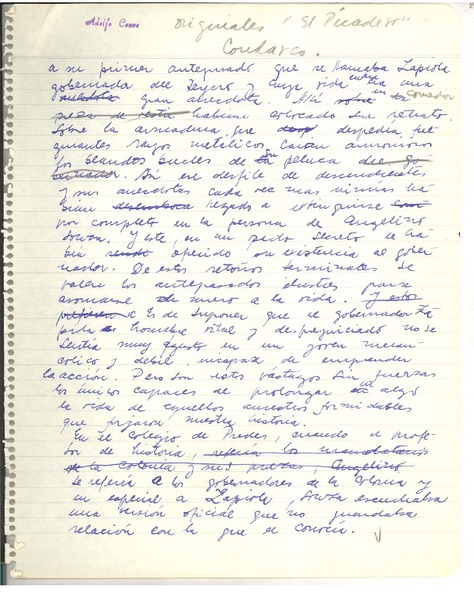 Adolfo Couve
originales "El Picadero"
Condarco.
a su primer antepasado que se llamaba Lapiola
gobernador del Reyno y cuya vida era una
anécdota gran anécdota. Ahí sobre en el comedor
pieza de habían colocado su retrato.
Sobre la armadura, que despedía ful-
gurantes rayos metálicos caían armoniosos
los blandos bucles de su peluca
Así ese desfile de descendientes
y sus anécdotas cada vez más nimias ha-
bían llegado a extinguirse
por completo en la persona de Angelino
Souza. Y este, en un pacto secreto le ha-
bía ofrecido su existencia al gober-
nador. De estos retoños terminales se
valen los antepasados ilustres para
asomarse de nuevo a la vida. Y estos
a Es de suponer que el gobernador La-
piola hombre vital y desprejuiciado no se
sentía muy agusto en un joven melan-
cólico y débil, incapaz de emprender
la acción. Pero son estos vástagos sin fuerzas
los únicos capaces de prolongar en algo
la vida de aquellos ancestros formidables
que forjaron nuestra historia.
En el colegio de Padres, cuando el profe-
sor de historia, refería los mandatarios
de la colonia y sus proezas, Angelino
se refería a los gobernadores de la Colonia y
en especial a Lapiola, Souza escuchaba
una versión oficial que no guardaba
relación con la que el conocía.